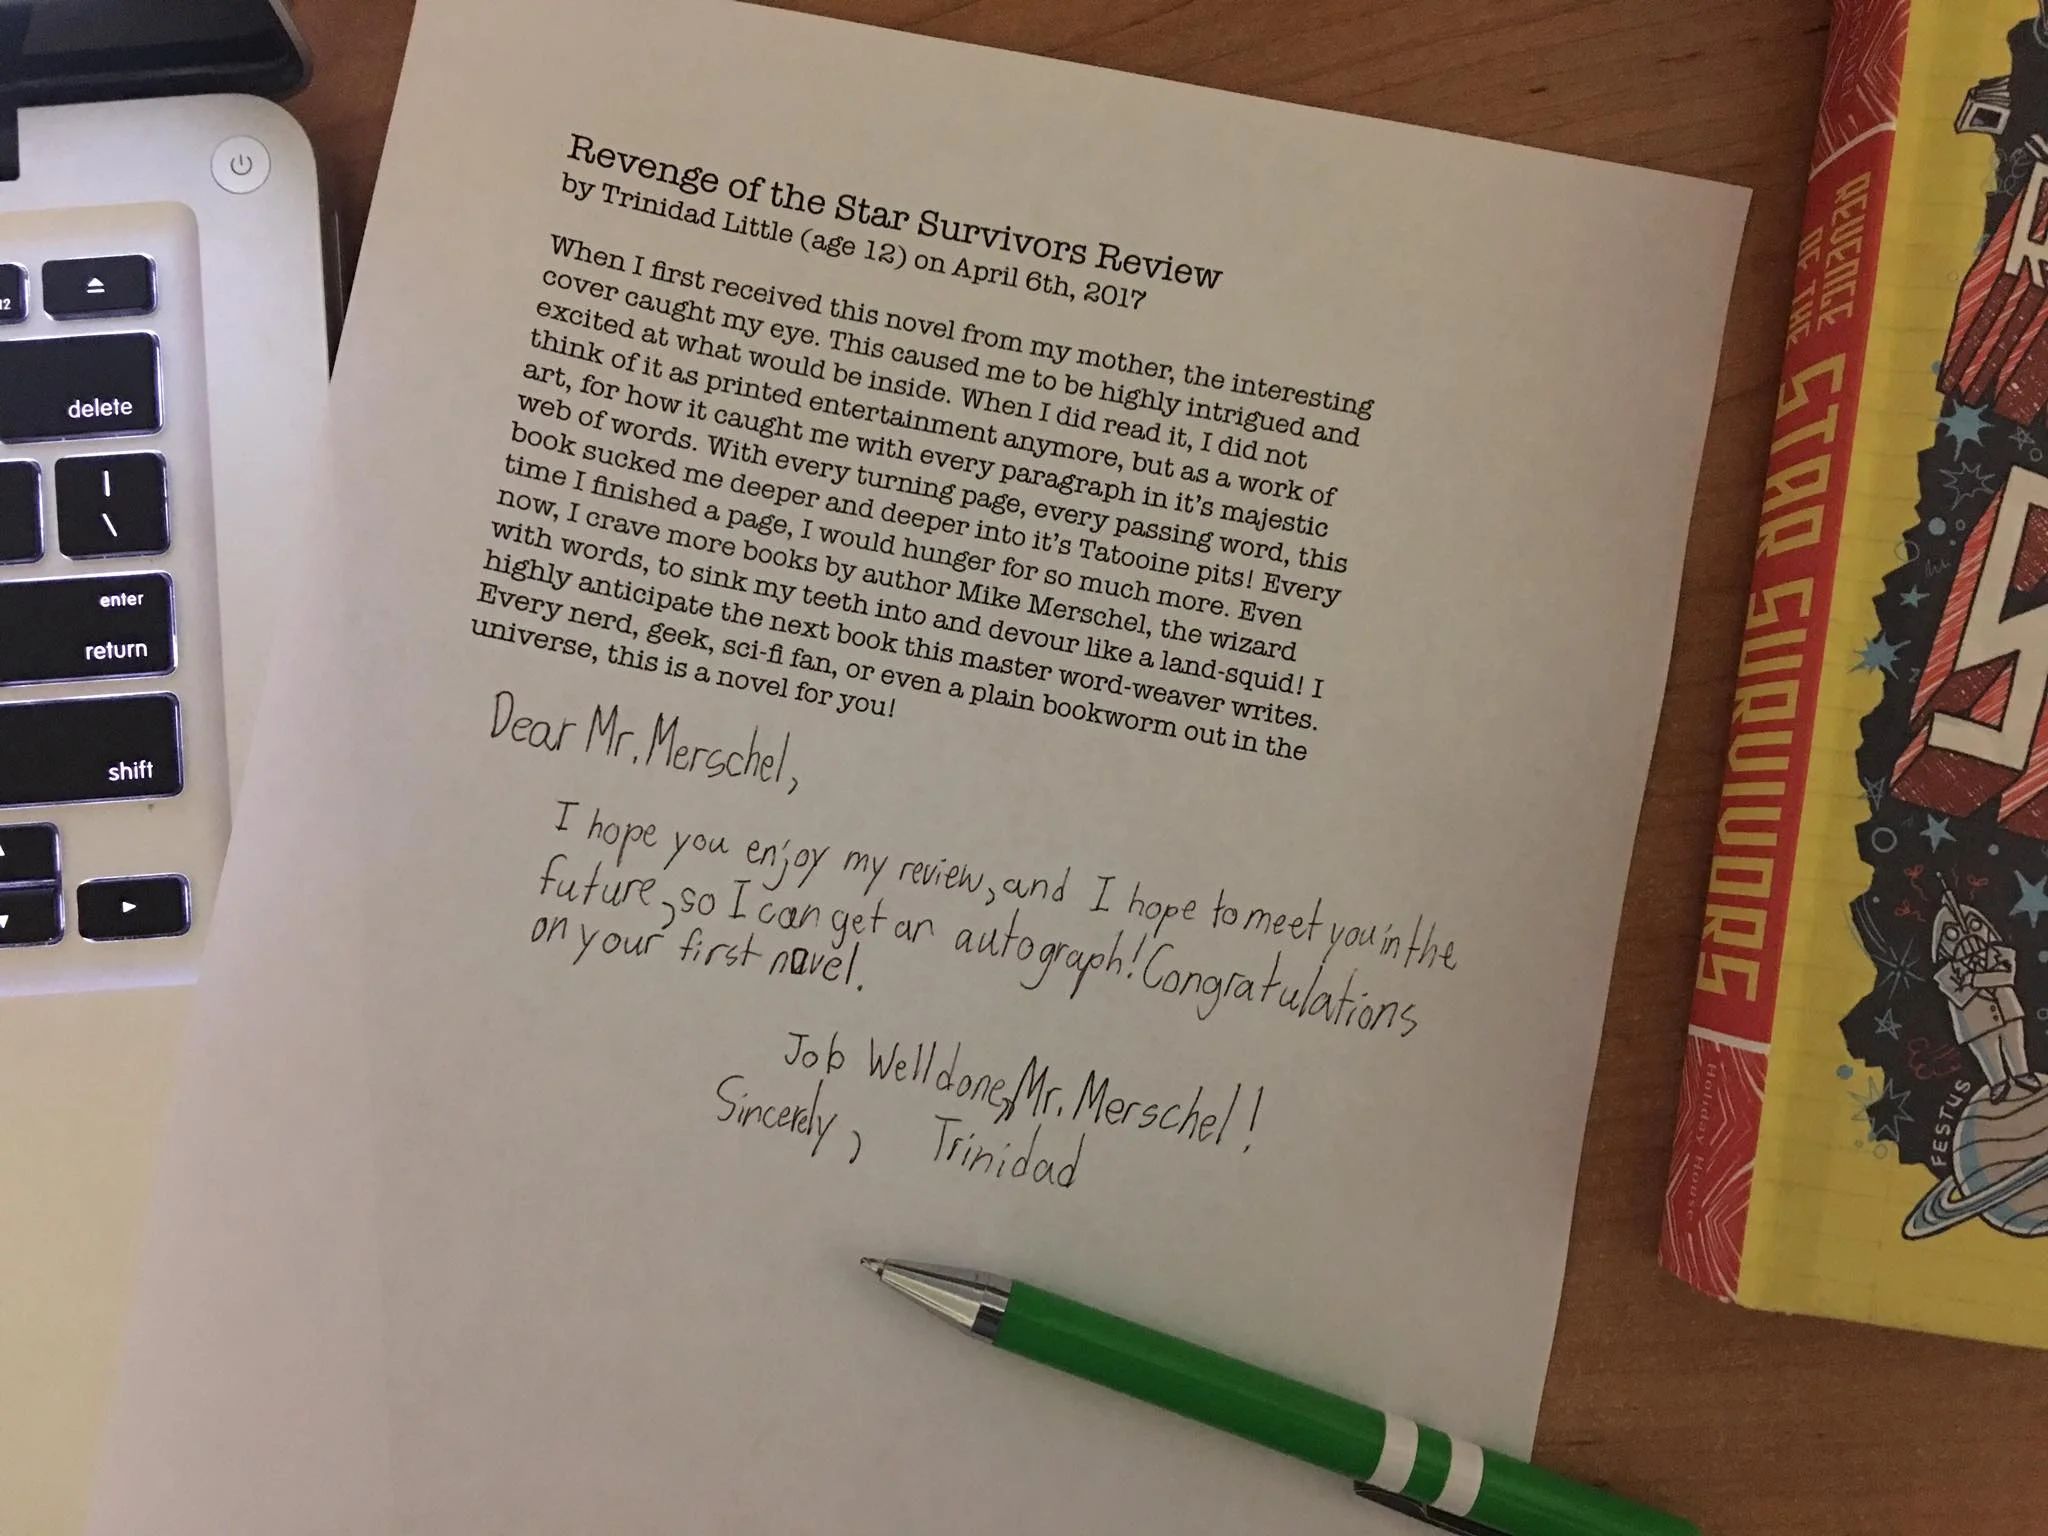 Revenge of the Star Survivors Review
by Trinidad Little (age 12) on April 6th, 2017
When I first received this novel from my mother, the interesting
cover caught my eye. This caused me to be highly intrigued and
excited at what would be inside. When I did read it, I did not
think of it as printed entertainment anymore, but as a work of
art, for how it caught me with every paragraph in it's majestic
web of words. With every turning page, every passing word, this
book sucked me deeper and deeper into it's Tatooine pits! Every
time I finished a page, I would hunger for so much more. Even
now, I crave more books by author Mike Merschel, the wizard
with words, to sink my teeth into and devour like a land-squid! I
highly anticipate the next book this master word-weaver writes.
Every nerd, geek, sci-fi fan, or even a plain bookworm out in the
universe, this is a novel for you!
Dear Mr. Merschel,
I hope you enjoy my review, and I hope to meet you in the
future, so I can get an autograph! Congratulations
on your first novel.
Job Well done, Mr. Merschel!
Sincerely, Trinidad
delete
|
\
enter
return
shift
12
REVENGE
OF THE
STAR SURVIVORS
Holiday House
FESTUS